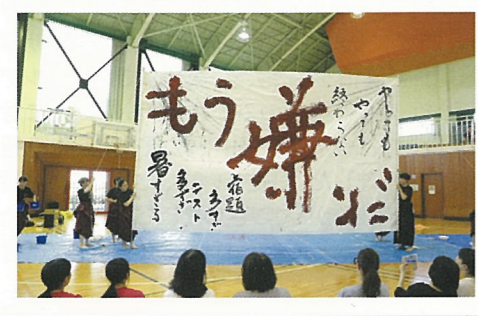 もう嫌だ
やっても
やっても
終わらない
宿題
多すぎ
テスト
多すぎ
暑すぎる